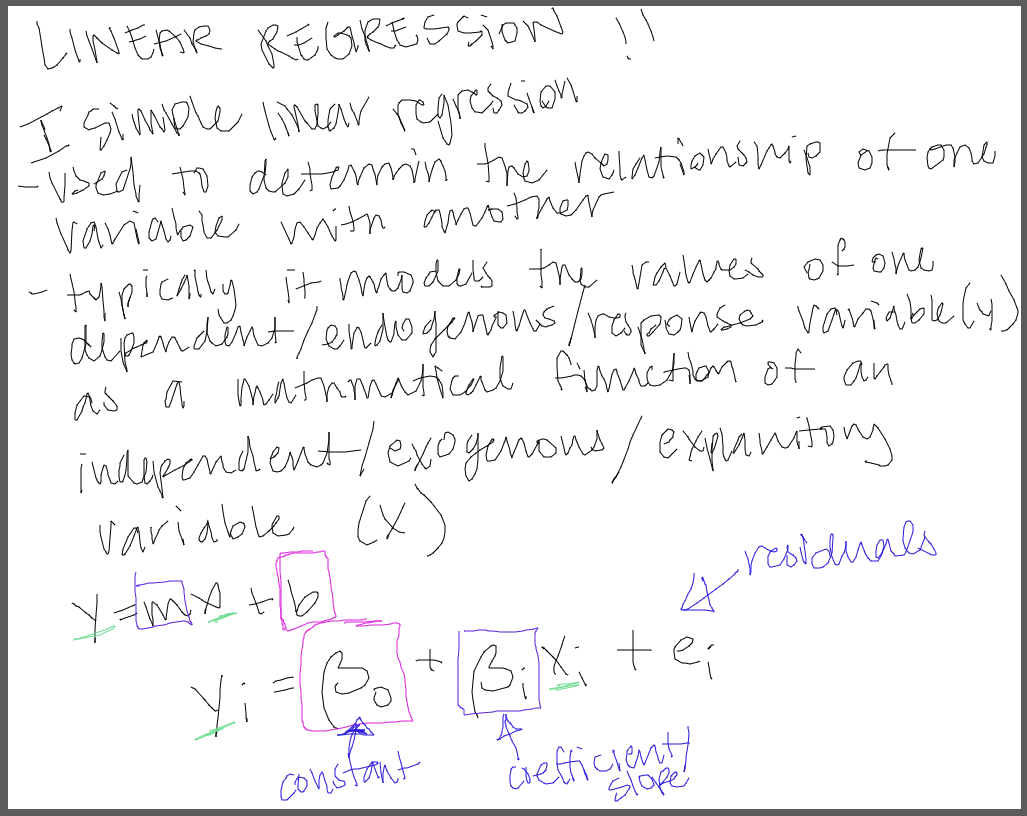 LINEAR REGRESSION !!
I simple linear regression
- Used to determin the relationship of one
variable with another
- typically it models the values of one
dependent/endogenous/response variable (y)
as a mathmatical function of an
independent/exogenous/explanitory
variable (x)
residuals
y = mx + b
yi = β0 + βi xi + ei
constant
coefficient/
slope